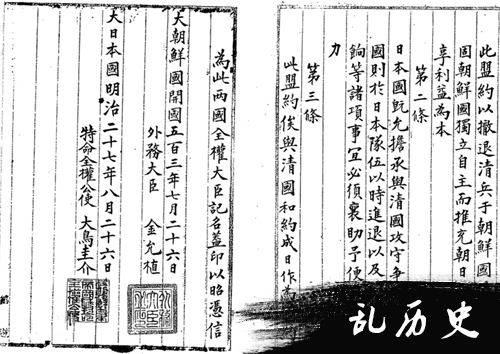 此盟約以撤退清兵于朝鮮國
固朝鮮國獨立自主而推充朝日
享利益為本
第二條
日本國既允擔承與清國攻守争
國則於日本隊伍以時進退以及
餉等諸項事宜必須襄助予便
力
第三條
此盟約俟與清國和約成日作為
為此兩國全權大臣記名蓋印以昭憑信
大朝鮮國開國五百三年七月二十六日
外務大臣 金允植
大日本國明治二十七年八月二十六日
特命全權公使 大鳥圭介
乱历史